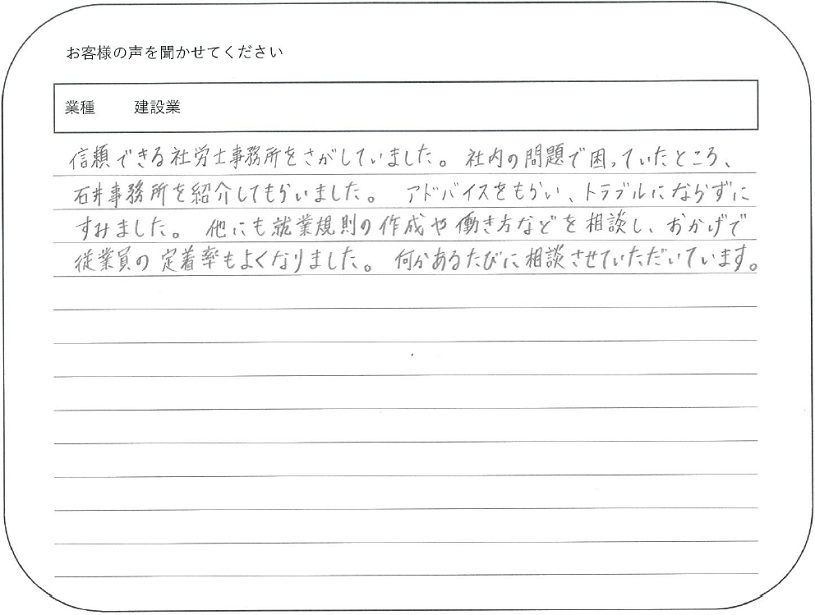 お客様の声を聞かせてください
業種　　建設業
信頼できる社労士事務所をさがしていました。 社内の問題で困っていたところ、
石井事務所を紹介してもらいました。 アドバイスをもらい、トラブルにならずに
すみました。 他にも就業規則の作成や働き方などを相談し、おかげで
従業員の定着率もよくなりました。 何かあるたびに相談させていただいています。